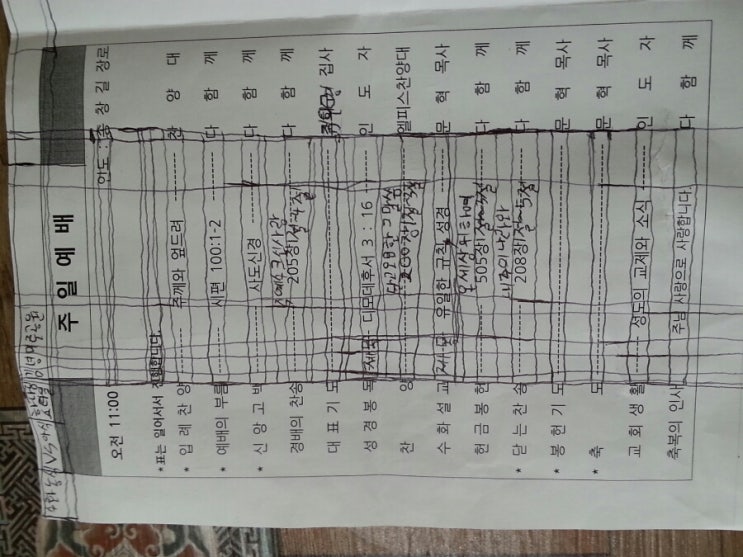 주일예배
오전 11:00 인도 : 홍창길 장로
*표는 일어서서 진행합니다.
* 입례찬양 주께와 엎드려 찬양대
* 예배의 부름 시편 100:1-2 다함께
* 신앙고백 사도신경 다함께
경배의 찬송 주 예수 크신 사랑 205장 다함께
대표기도 집사
성경봉독 디모데후서 3 : 16 인도자
찬양 달고 오묘한 그 말씀 200장 엘피스찬양대
수화설교 제목 유일한 규칙, 성경 문혁목사
헌금봉헌 온 세상 위하여 505장 다함께
* 닫는찬송 내 주의 나라와 208장 다함께
* 봉헌기도 문혁목사
* 축도 문혁목사
교회생활 성도의 교제와 소식 인도자
축복의 인사 주님 사랑으로 사랑합니다. 다함께